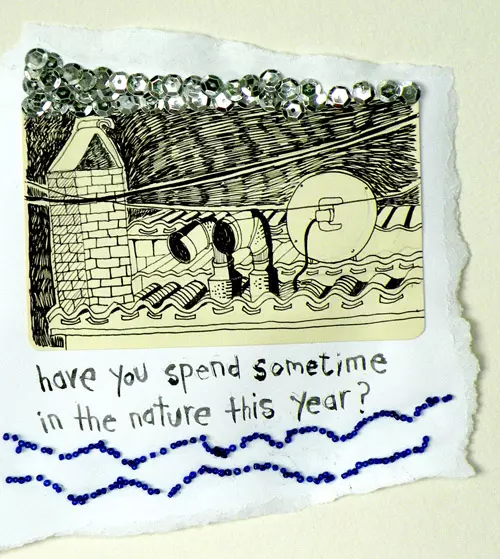 have you spend sometime
in the nature this year?